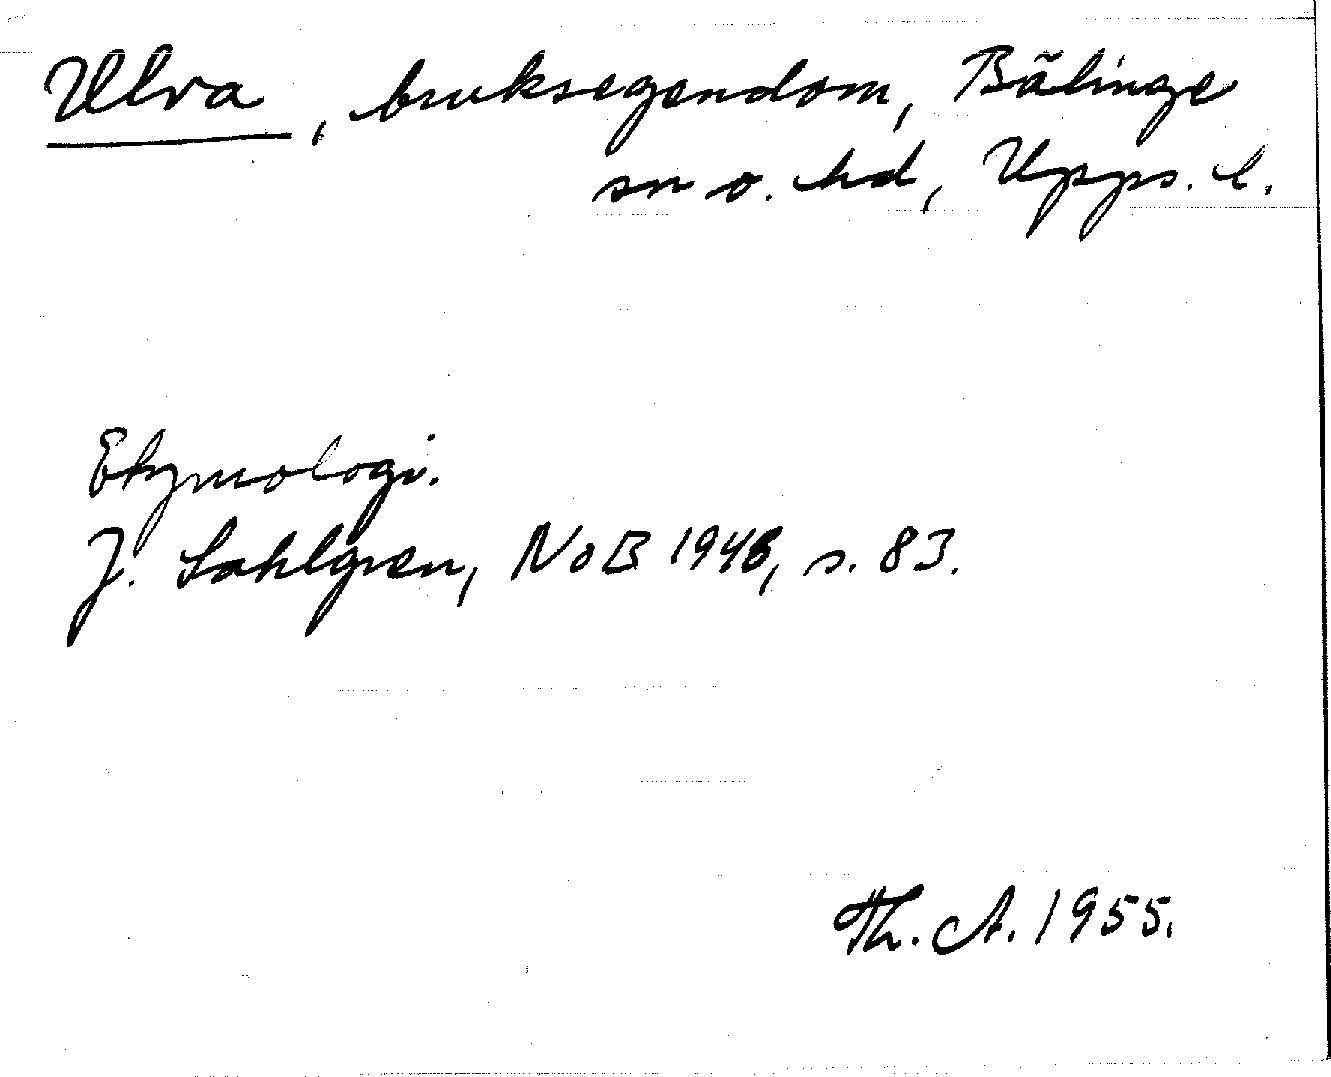 Ulva, bruksegendom, Bälinge
sn o. hd, Upps. l.
Etymologi.
J. Sahlgren, NoB 1948, s. 83.
Th. A. 1955.